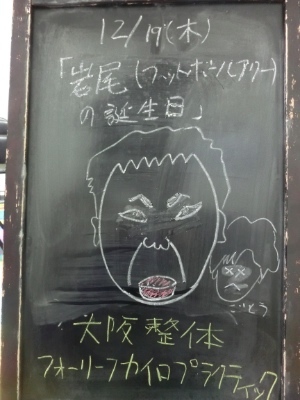 12/19(木)
「岩尾(フットボールアワー)
の誕生日」
ごとう
大阪整体
フォーリーフカイロプラクティック